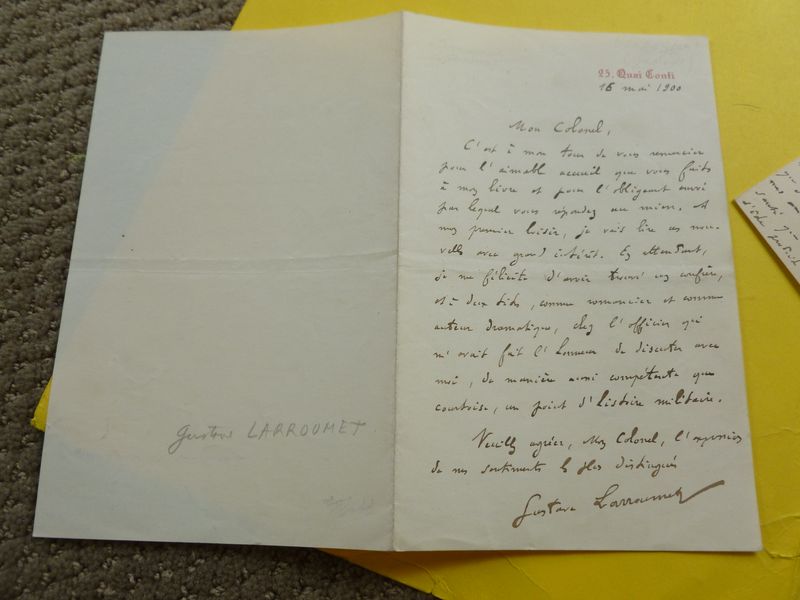 25, Quai Conti
16 mai 1900
Mon Colonel,
C'est à mon tour de vous remercier
pour l'aimable accueil que vous faites
à mon livre et pour l'obligeant envoi
par lequel vous répondez au mien. A
mon premier loisir, je vais lire ces nou-
velles avec grand intérêt. En attendant,
je me félicite d'avoir trouvé un confrère,
et à deux titres, comme romancier et comme
auteur dramatique, chez l'officier qui
m'avait fait l'honneur de discuter avec
moi, de manière aussi compétente que
courtoise, un point d'histoire militaire.
Veuillez agréer, Mon Colonel, l'expression
de mes sentiments les plus distingués
Gustave Larroumet
Gustave LARROUMET.